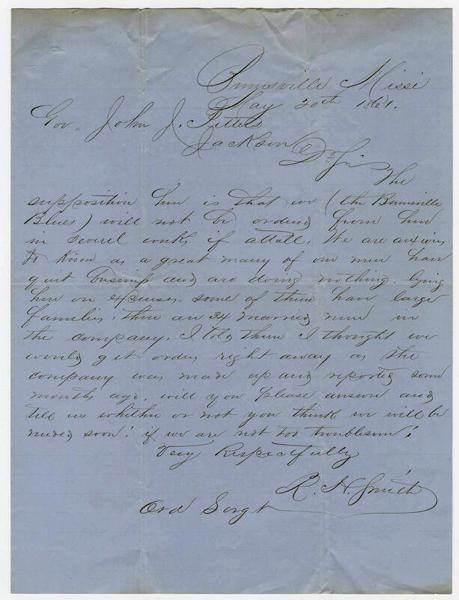 Burnsville Missi
May 30th 1861.
Gov. John J. Pettus
Jackson
Dr Sir
The
supposition here is that we (the Burnsville
Blues) will not be ordered from here
in severl weeks if attall. We are anxious
to know as a great many of our men have
quit buisness and are doing nothing. Being
here on expenses. some of them have large
families, there are 24 married men in
the company. I told them I thought we
would get orders right away as the
company was made up and reported some
months ago. will you please answer and
tell us whether or not you think we will be
needed soon; if we are not too troublesom;
Very Respectfully
R. H. Smith
Ord Sergt